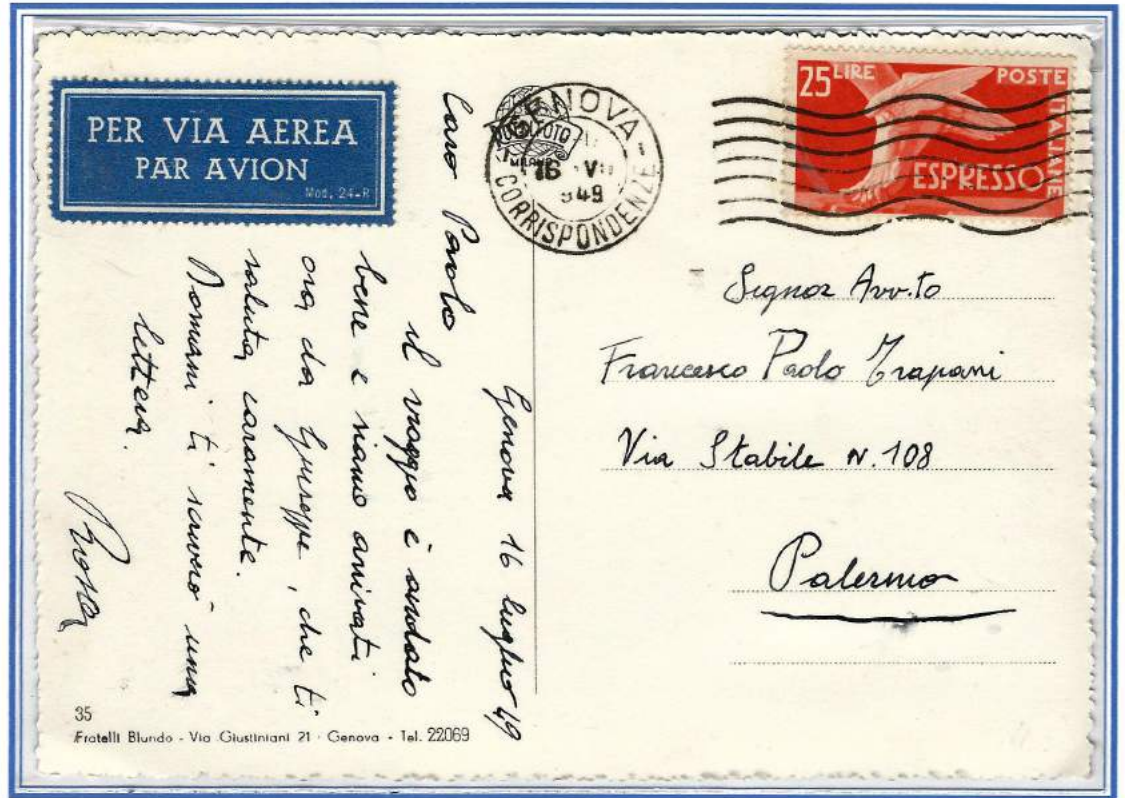 PER VIA AEREA
PAR AVION
Mod. 24-R
GENOVA
16 VII
949
CORRISPONDENZE
25 LIRE
POSTE ITALIANE
ESPRESSO
Genova 16 luglio 49
Caro Paolo
il viaggio è andato
bene e siamo arrivati
ora da Giuseppe, che ti
saluta caramente.
Domani ti scriverò una
lettera.
Rosa
Signor Avv.to
Francesco Paolo Trapani
Via Stabile N. 108
Palermo
35
Fratelli Blundo - Via Giustiniani 21 - Genova - Tel. 22069